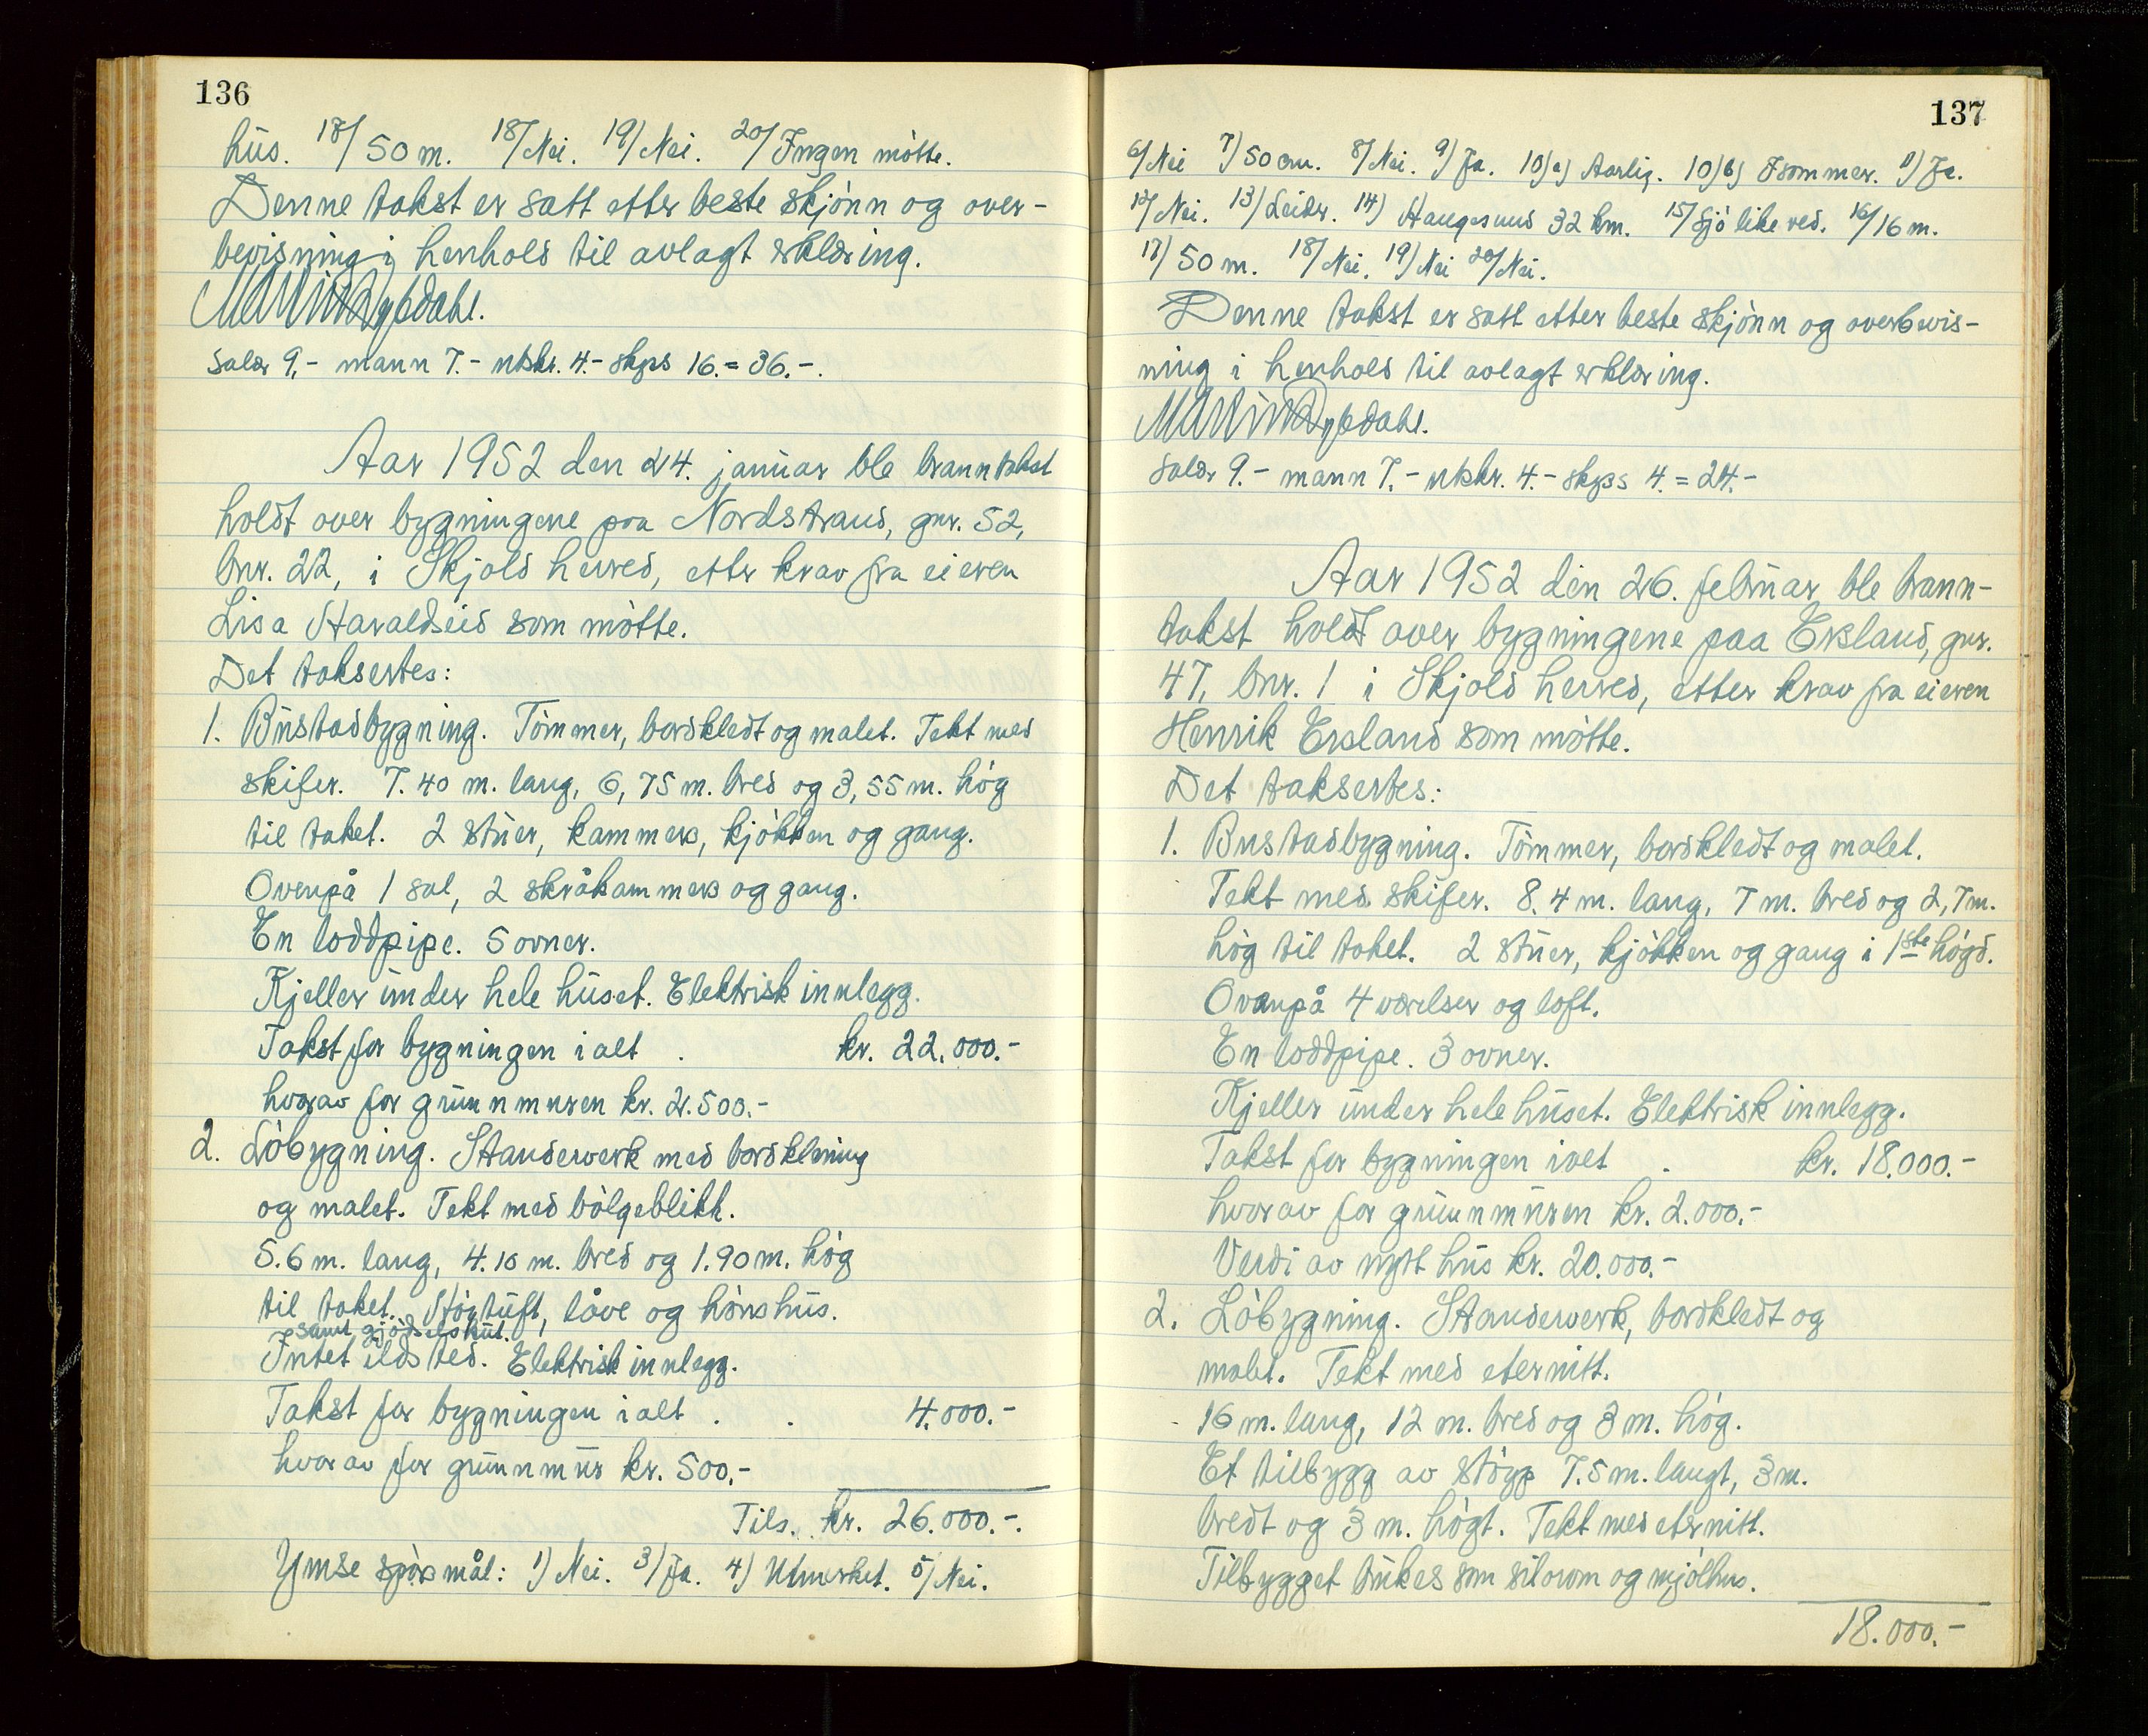 136
hus. 18/ 50 m. 18/ Nei. 19/ Nei. 20/ Ingen mòtte.
Denne takst er satt etter beste skjònn og over-
bevisning i henhold til avlagt erklæring.
Martin Dybdahl.
Salær 9.- mann 7.- utskr. 4.- skyss 16. = 36.-.
Aar 1952 den 24. januar ble branntakst
holdt over bygningene paa Nordstrand, gnr. 52,
bnr. 22, i Skjold herred, etter krav fra eieren
Lisa Haraldseid som mòtte.
Det taksertes:
1. Bustadbygning. Tòmmer, bordkledt og malet. Tekt med
skifer. 7.40 m. lang, 6,75 m. bred og 3,55 m. hòg
til taket. 2 stuer, kammers, kjòkken og gang.
Ovenpå 1 sal, 2 skråkammers og gang.
En loddpipe. 5 ovner.
Kjeller under hele huset. Elektrisk innlegg.
Takst for bygningen ialt . kr. 22.000.-
hvorav for grunnmuren kr. 2.500.-
2. Lòbygning. Standerverk med bordkledning
og malet. Tekt med bòlgeblikk.
5.6 m. lang, 4.10 m. bred og 1.90 m. hòg
til taket. Hòytuft, låve og hònshus.
samt gjòdselskut.
Intet ildsted. Elektrisk innlegg.
Takst for bygningen ialt . . 4.000.-
hvorav for grunnmur kr. 500.-
Tils. kr. 26.000.-.
Ymse spòrsmål: 1) Nei. 3/ Ja. 4) Utmerket. 5/ Nei.
137
6/ Nei 7) 50 cm. 8/ Nei. 9) Ja. 10)a) Aarlig. 10)b) Fsommer. 11) Ja.
12/ Nei. 13) Leidr. 14) Haugesund 32 km. 15/ Sjò like ved. 16/ 16 m.
17/ 50 m. 18/ Nei. 19) Nei 20/ Nei.
Denne takst er satt etter beste skjònn og overbevis-
ning i henhold til avlagt erklæring.
Martin Dybdahl.
Salær 9.- mann 7.- utskr. 4.- skyss 4. = 24.-
Aar 1952 den 26. februar ble brann-
takst holdt over bygningene paa Erland, gnr.
47, bnr. 1 i Skjold herred, etter krav fra eieren
Henrik Erland som mòtte.
Det taksertes:
1. Bustadbygning. Tòmmer, bordkledt og malet.
Tekt med skifer. 8.4 m. lang, 7 m. bred og 2,7 m.
hòg til taket. 2 stuer, kjòkken og gang i 1ste hògd.
Ovenpå 4 værelser og loft.
En loddpipe. 3 ovner.
Kjeller under hele huset. Elektrisk innlegg.
Takst for bygningen ialt . kr. 18.000.-
hvorav for grunnmuren kr. 2.000.-
Verdi av nytt hus kr. 20.000.-
2. Lòbygning. Standerverk, bordkledt og
malet. Tekt med eternitt.
16 m. lang, 12 m. bred og 3 m. hòg.
Et tilbygg av stòyp 7.5 m. langt, 3 m.
bredt og 3 m. hògt. Tekt med eternitt.
Tilbygget brukes som silorom og mjòlhus.
18.000.-